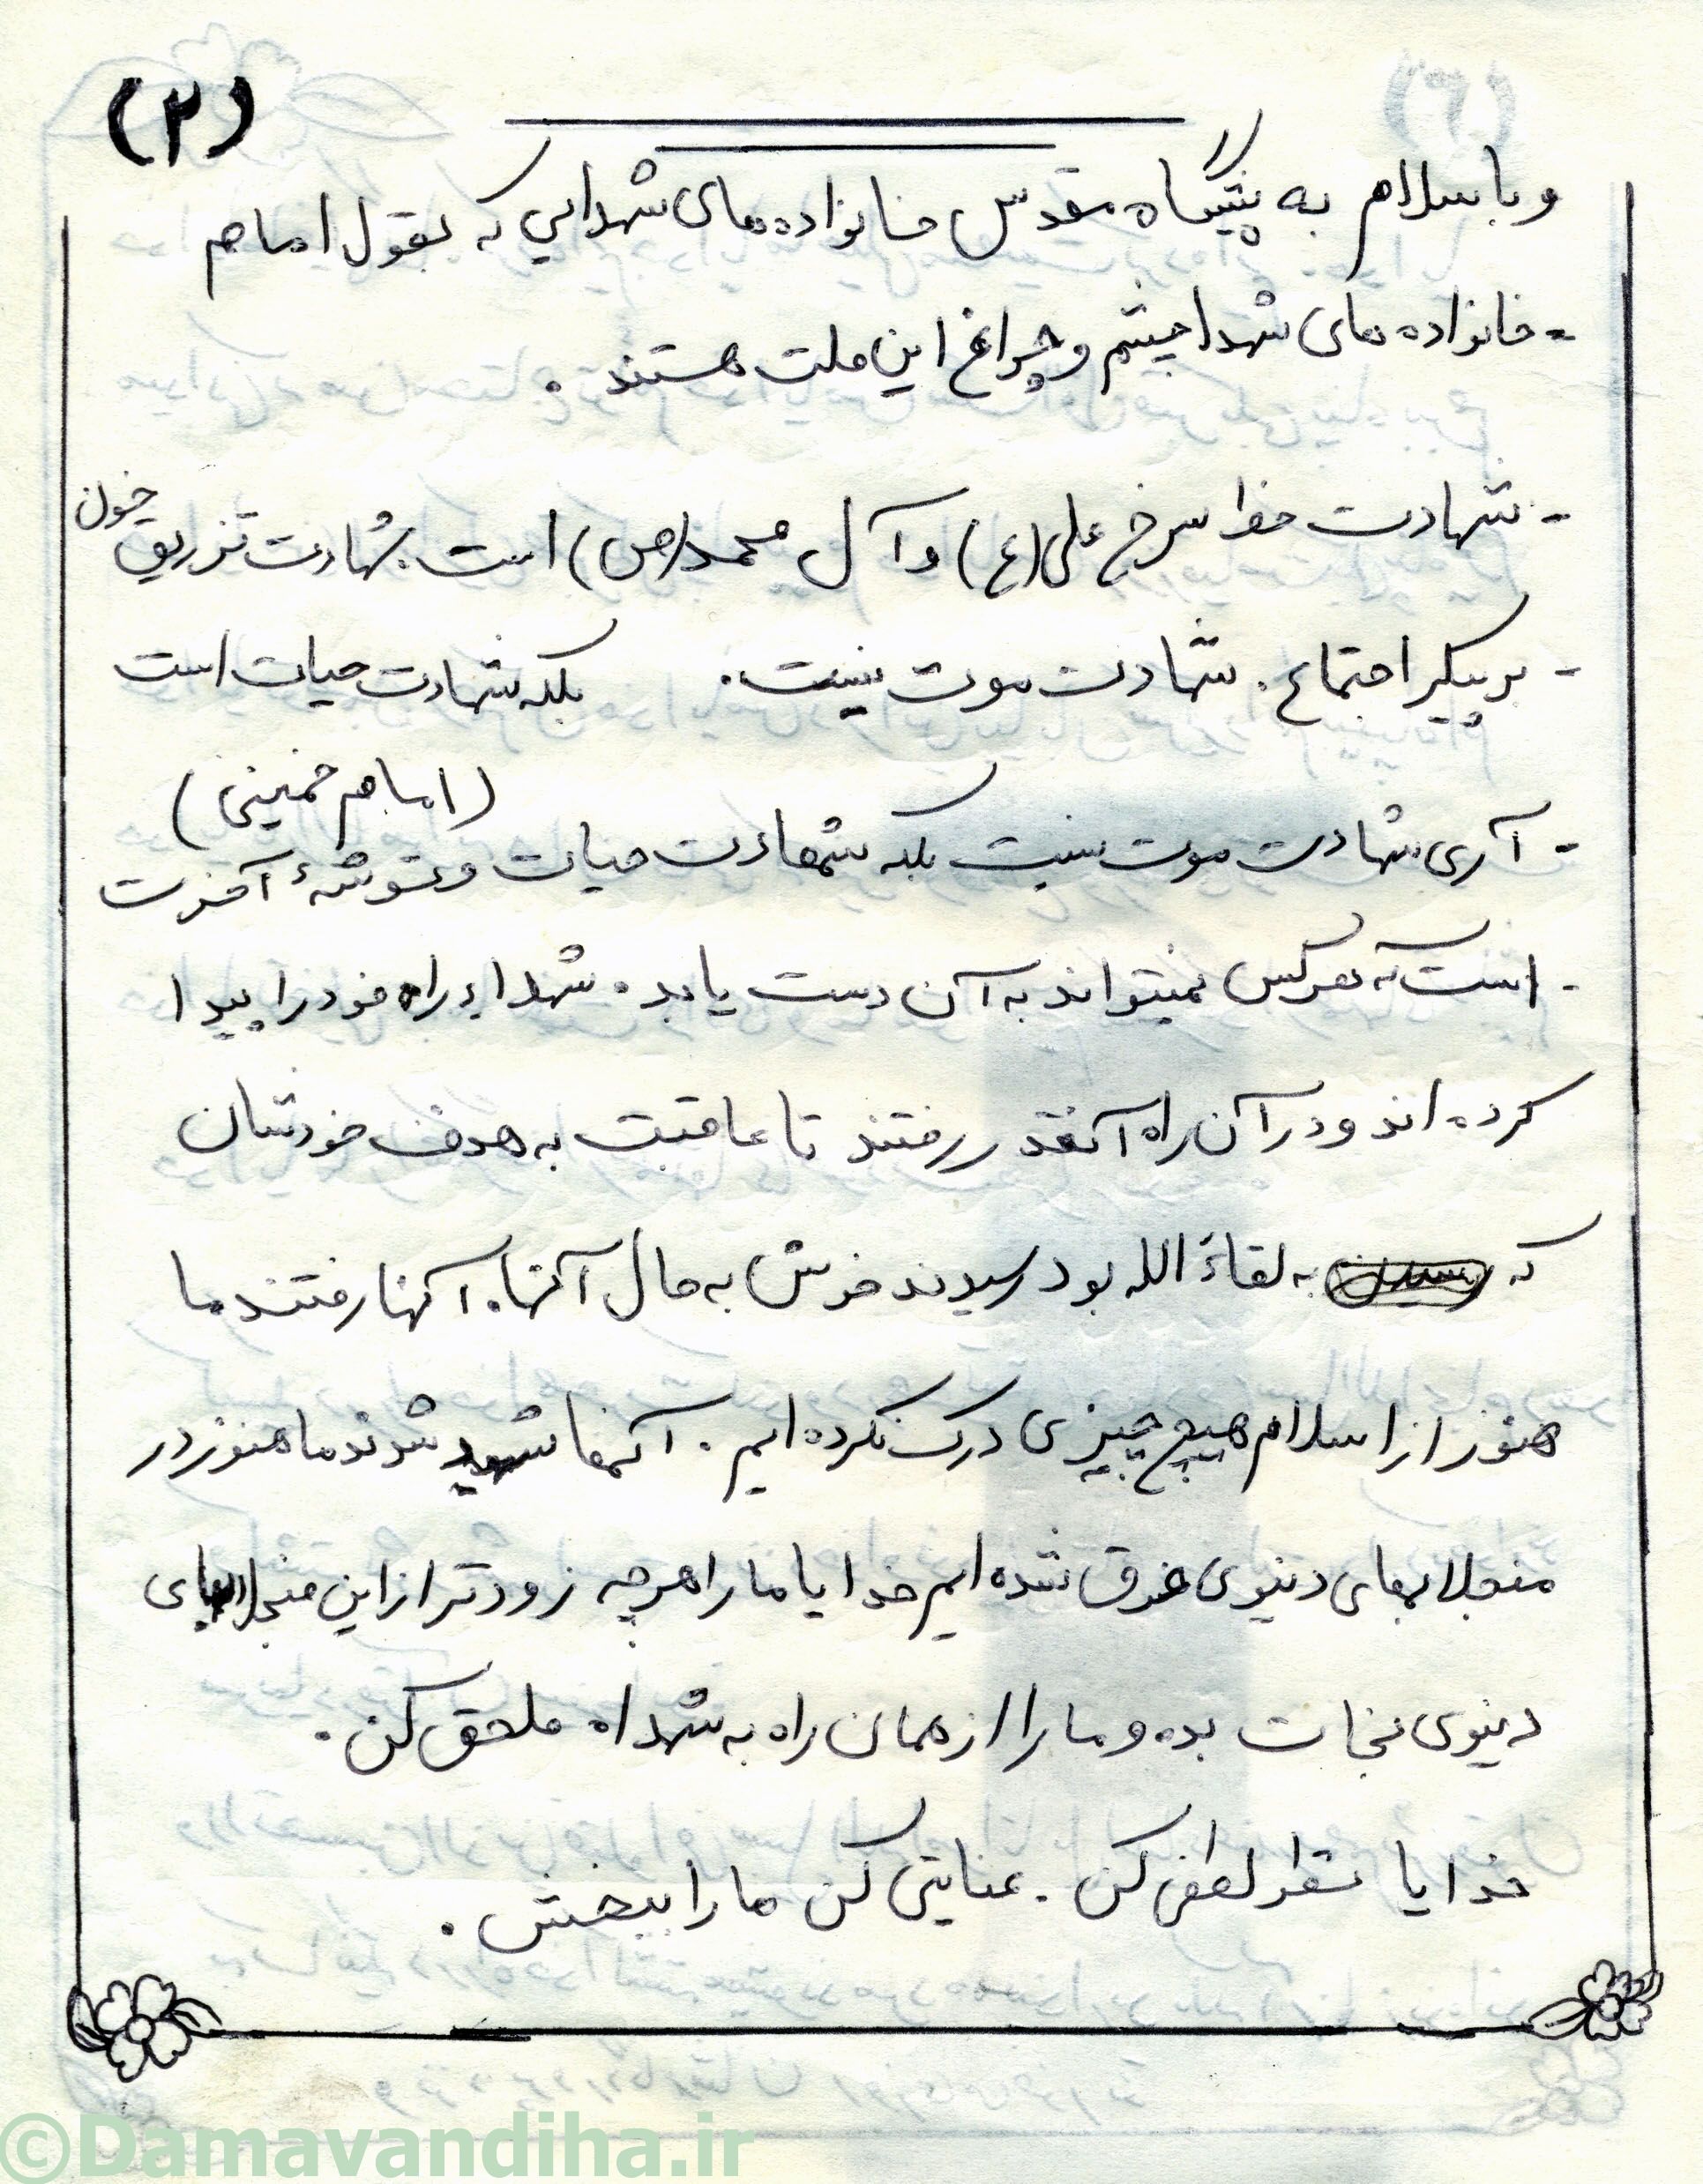 (۲)
و با سلام به پیشگاه مقدس خانواده های شهدایی که بقول امام
- خانواده های شهدا چشم و چراغ این ملت هستند .
- شهادت خط سرخ علی (ع) و آل محمد (ص) است . شهادت تزریق خون
- بر پیکر اجتماع . شهادت موت نیست . بلکه شهادت حیات است
(امام خمینی)
- آری شهادت موت نیست بلکه شهادت حیات و توشهٔ آخرت
- است که هرکس نمیتواند به آن دست یابد . شهداء راه خود را پیدا
کرده اند و در آن راه آنقدر رفتند تا عاقبت به هدف خودشان
که به لقاءَ الله بود رسیدند خوش به حال آنها . آنها رفتند ما
هنوز از اسلام هیچ چیزی درک نکرده ایم . آنها شهید شدند ما هنوز در
منجلابهای دنیوی غرق شده ایم خدایا ما را هرچه زودتر از این منجلابهای
دنیوی نجات بده و ما را از همان راه به شهداء ملحق کن .
خدایا نظر لطفی کن . عنایتی کن ما را ببخش .
©Damavandiha.ir